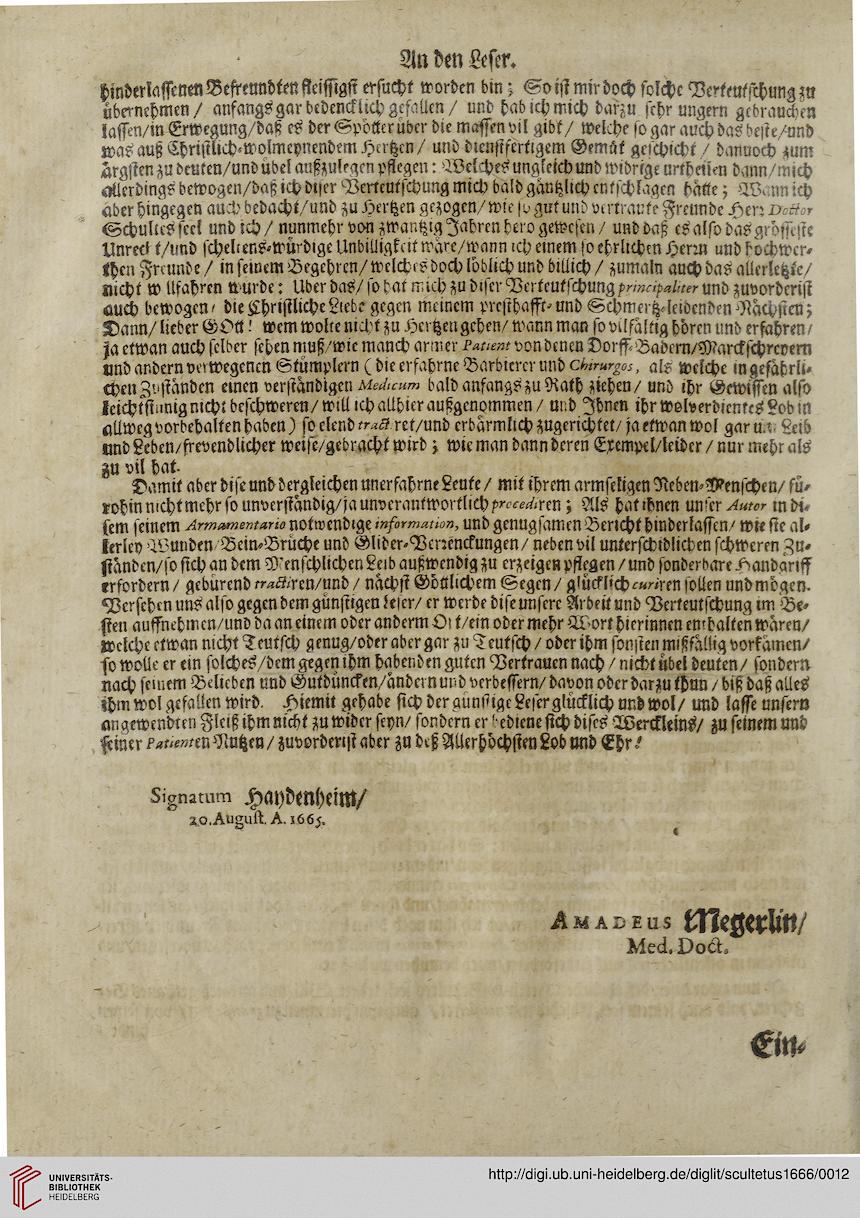 An den Leser.
hinderlassenen Befreundten fleissigst ersucht worden bin; So ist mir doch solche Verteutschung zu
übernehmen / anfangs gar bedencklich gefallen / und hab ich mich darzu sehr ungern gebrauchen
lassen/in Erwegung/daß es der Spötter über die massen vil gibt / welche so gar auch das beste/und
was auß Christlich-wolmeynendem Hertzen / und dienstfertigem Gemüt geschicht / dannoch zum
ärgsten zu deuten/und übel außzulegen pflegen: Welches ungleich und widrige urtheilen dann/mich
allerdings bewogen/daß ich diser Verteutschung mich bald gäntzlich entschlagen hätte; Wann ich
aber hingegen auch bedacht/und zu Hertzen gezogen/wie so gut und vertraute Freunde Herr Doctor
Schultes seel und ich / nunmehr von zwantzig Jahren hero gewesen / und daß es also das grösseste
Unrecht/und scheltens-würdige Unbilligkeit wäre/wann ich einem so ehrlichen Herrn und hochwer-
then Freunde / in seinem Begehren/welches doch löblich und billich / zumaln auch das allerletzte/
nicht willfahren wurde: Uber das/so hat mich zu diser Verteutschung principaliter und zuvorderist
auch bewogen/ die Christliche Liebe gegen meinem presthafft- und Schmertz-leidenden Nächsten;
Dann/lieber GOtt! wem wolte nicht zu Hertzen gehen/wann man so vilfältig hören und erfahren/
ja etwan auch selber sehen muß/wie manch armer Patient von denen Dorff-Badern/Marckschreyern
und andern verwegenen Stümplern (die erfahrne Barbierer und Chirurgos, als welche in gefährli-
chen Zuständen einen verständigen Medicum bald anfangs zu Rath ziehen/ und ihr Gewissen also
leichtsinnig nicht beschweren/ will ich allhier außgenommen / und Ihnen ihr wolverdientes Lob in
allweg vorbehalten haben) so elend tractiret/und erbärmlich zugerichtet/ ja etwan wol gar um Leib
und Leben/frevendlicher weise/gebracht wird; wie man dann deren Exempel/leider / nur mehr als
zu vil hat.
Damit aber dise und dergleichen unerfahrne Leute / mit ihrem armseligen Neben-Menschen/ fü-
rohin nicht mehr so unverständig/ja unverantwortlich procediren; Als hat ihnen unser Autor in di-
sem seinem Armamentario notwendige information, und genugsamen Bericht hinderlassen/ wie sie al-
lerley Wunden/Bein-Brüche und Glider-Verrenckungen / neben vil unterschidlichen schweren Zu-
ständen/so sich an dem Menschlichen Leib außwendig zu erzeigen pflegen / und sonderbare Handgriff
erfordern / gebürend tractiren/und / nächst Göttlichem Segen / glücklich curiren sollen und mögen.
Versehen uns also gegen dem günstigen Leser/ er werde dise unsere Arbeit und Verteutschung im Be-
sten auffnehmen/und da an einem oder anderm Ort/ein oder mehr Wort hierinnen enthalten wären/
welche etwan nicht Teutsch genug/oder aber gar zu Teutsch / oder ihm sonsten mißfällig vorkämen/
so wolle er ein solches/dem gegen ihm habenden guten Vertrauen nach / nicht übel deuten/ sondern
nach seinem Belieben und Gutdüncken/ändern und verbessern/ davon oder darzu thun / biß daß alles
ihm wol gefallen wird. Hiemit gehabe sich der günstige Leser glücklich und wol/ und lasse unsern
angewendten Fleiß ihm nicht zu wider seyn/ sondern er bediene sich dises Werckleins/ zu seinem und
seiner Patienten Nutzen / zuvorderist aber zu deß Allerhöchsten Lob und Ehr!
Signatum Haydenheim/
20. August. A. 1665.
AMADEUS Megerlin/
Med. Doct.
Ein-
UNIVERSITÄTS-
BIBLIOTHEK
HEIDELBERG
http://digi.ub.uni-heidelberg.de/diglit/scultetus1666/0012